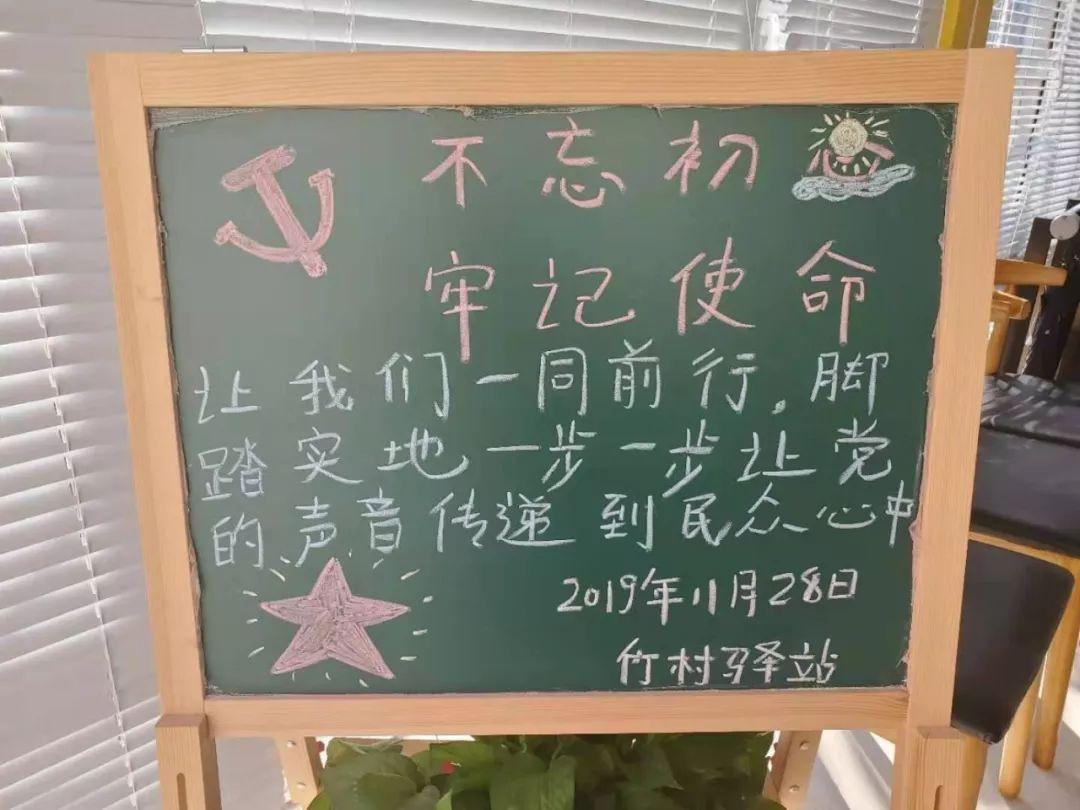 不忘初心
牢记使命
让我们一同前行,脚
踏实地一步一步让党
的声音传递到民众心中
2019年11月28日
竹村驿站